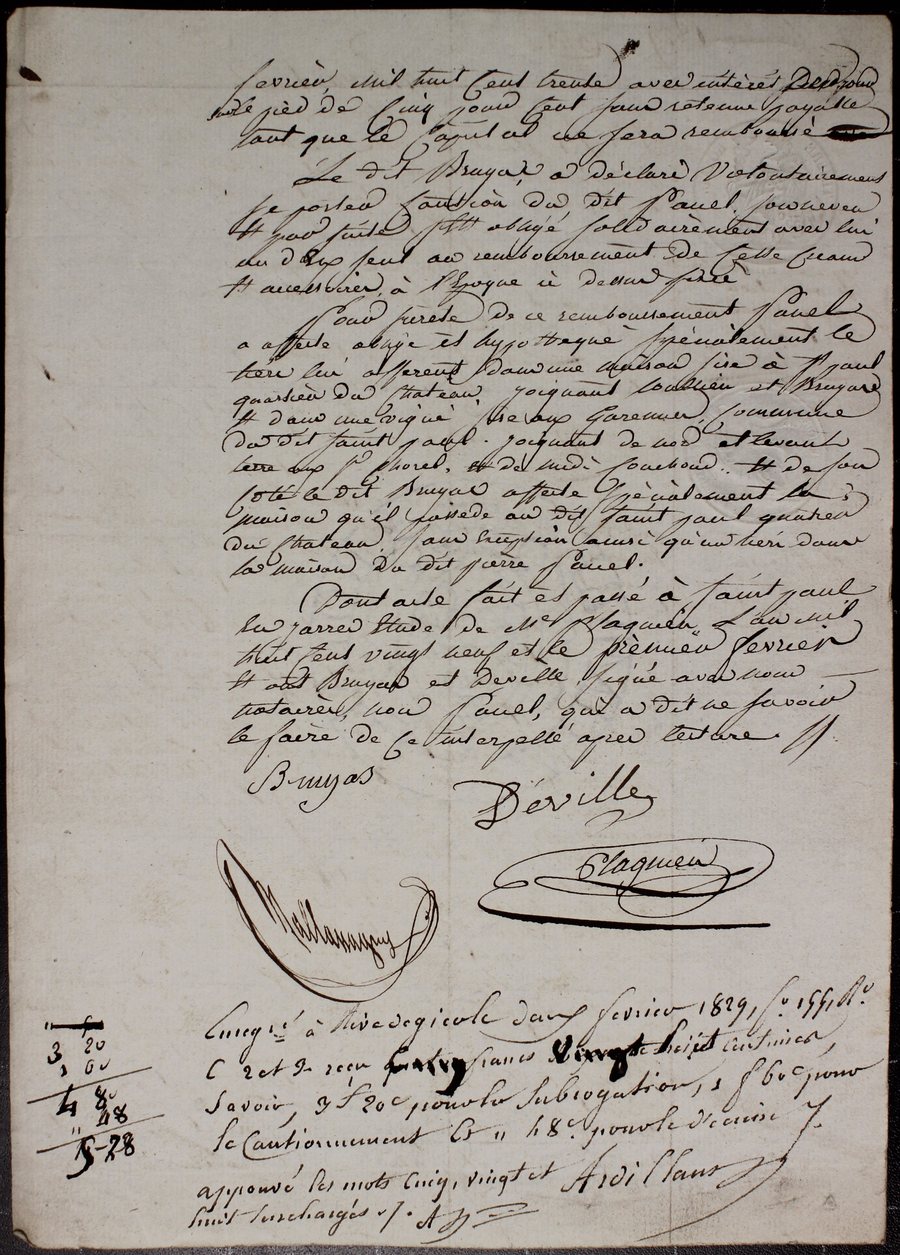 fevrier, mil huit Cent trente avec intérêt
sur le pied de Cinq pour Cent sans retenue payable
tant que le Capital ne sera remboursé
Le dit Bruyas a déclaré Volontairement
se porter Caution du dit Panel,
et par suite s'est obligé solidairement avec lui
un d'Eux seul au remboursement de Cette Creance
et accessoires, à l'Epoque ci dessus fixée
Pour sureté de ce remboursement Panel
a affecté obligé et hypothequé spécialement le
tiers lui afferent dans une maison sise à St paul
quartier du Chateau, joignant et Bruyas
et dans une vigne sise aux Garennes, Commune
du dit saint paul. joignant de nord et levant
terre aux Sr morel, et de midi . et de son
Coté le dit Bruyas affecte spécialement la
maison qu'il possede au dit saint paul quartier
du Chateau, sans Exception ainsi qu'un tiers dans
la maison du dit pierre Panel.
Dont acte fait et passé à saint paul
En jarrez Etude de Me Plagnieu, L'an mil
huit Cent vingt neuf et le premier fevrier
et ont Bruyas et Deville, signé avec nous
notaires, non Panel, qui a dit ne savoir
le faire de Ce interpellé apres lecture. //
Bruyas
Deville
Plagnieu
Enregré à Rivedegier le deux fevrier 1829, fo 155, Ro
C 2 et 3 reçu Cinq francs Vingt huit Centimes,
Savoir, 3f 20c pour la Subrogation, 1 f 60c pour
le Cautionnement Et " 48c. pour le décime /.
Ardillans
approuvé les mots Cinq, vingt et
huit surchargés ./. A
3 20
1 60
4 80
" 48
5-28